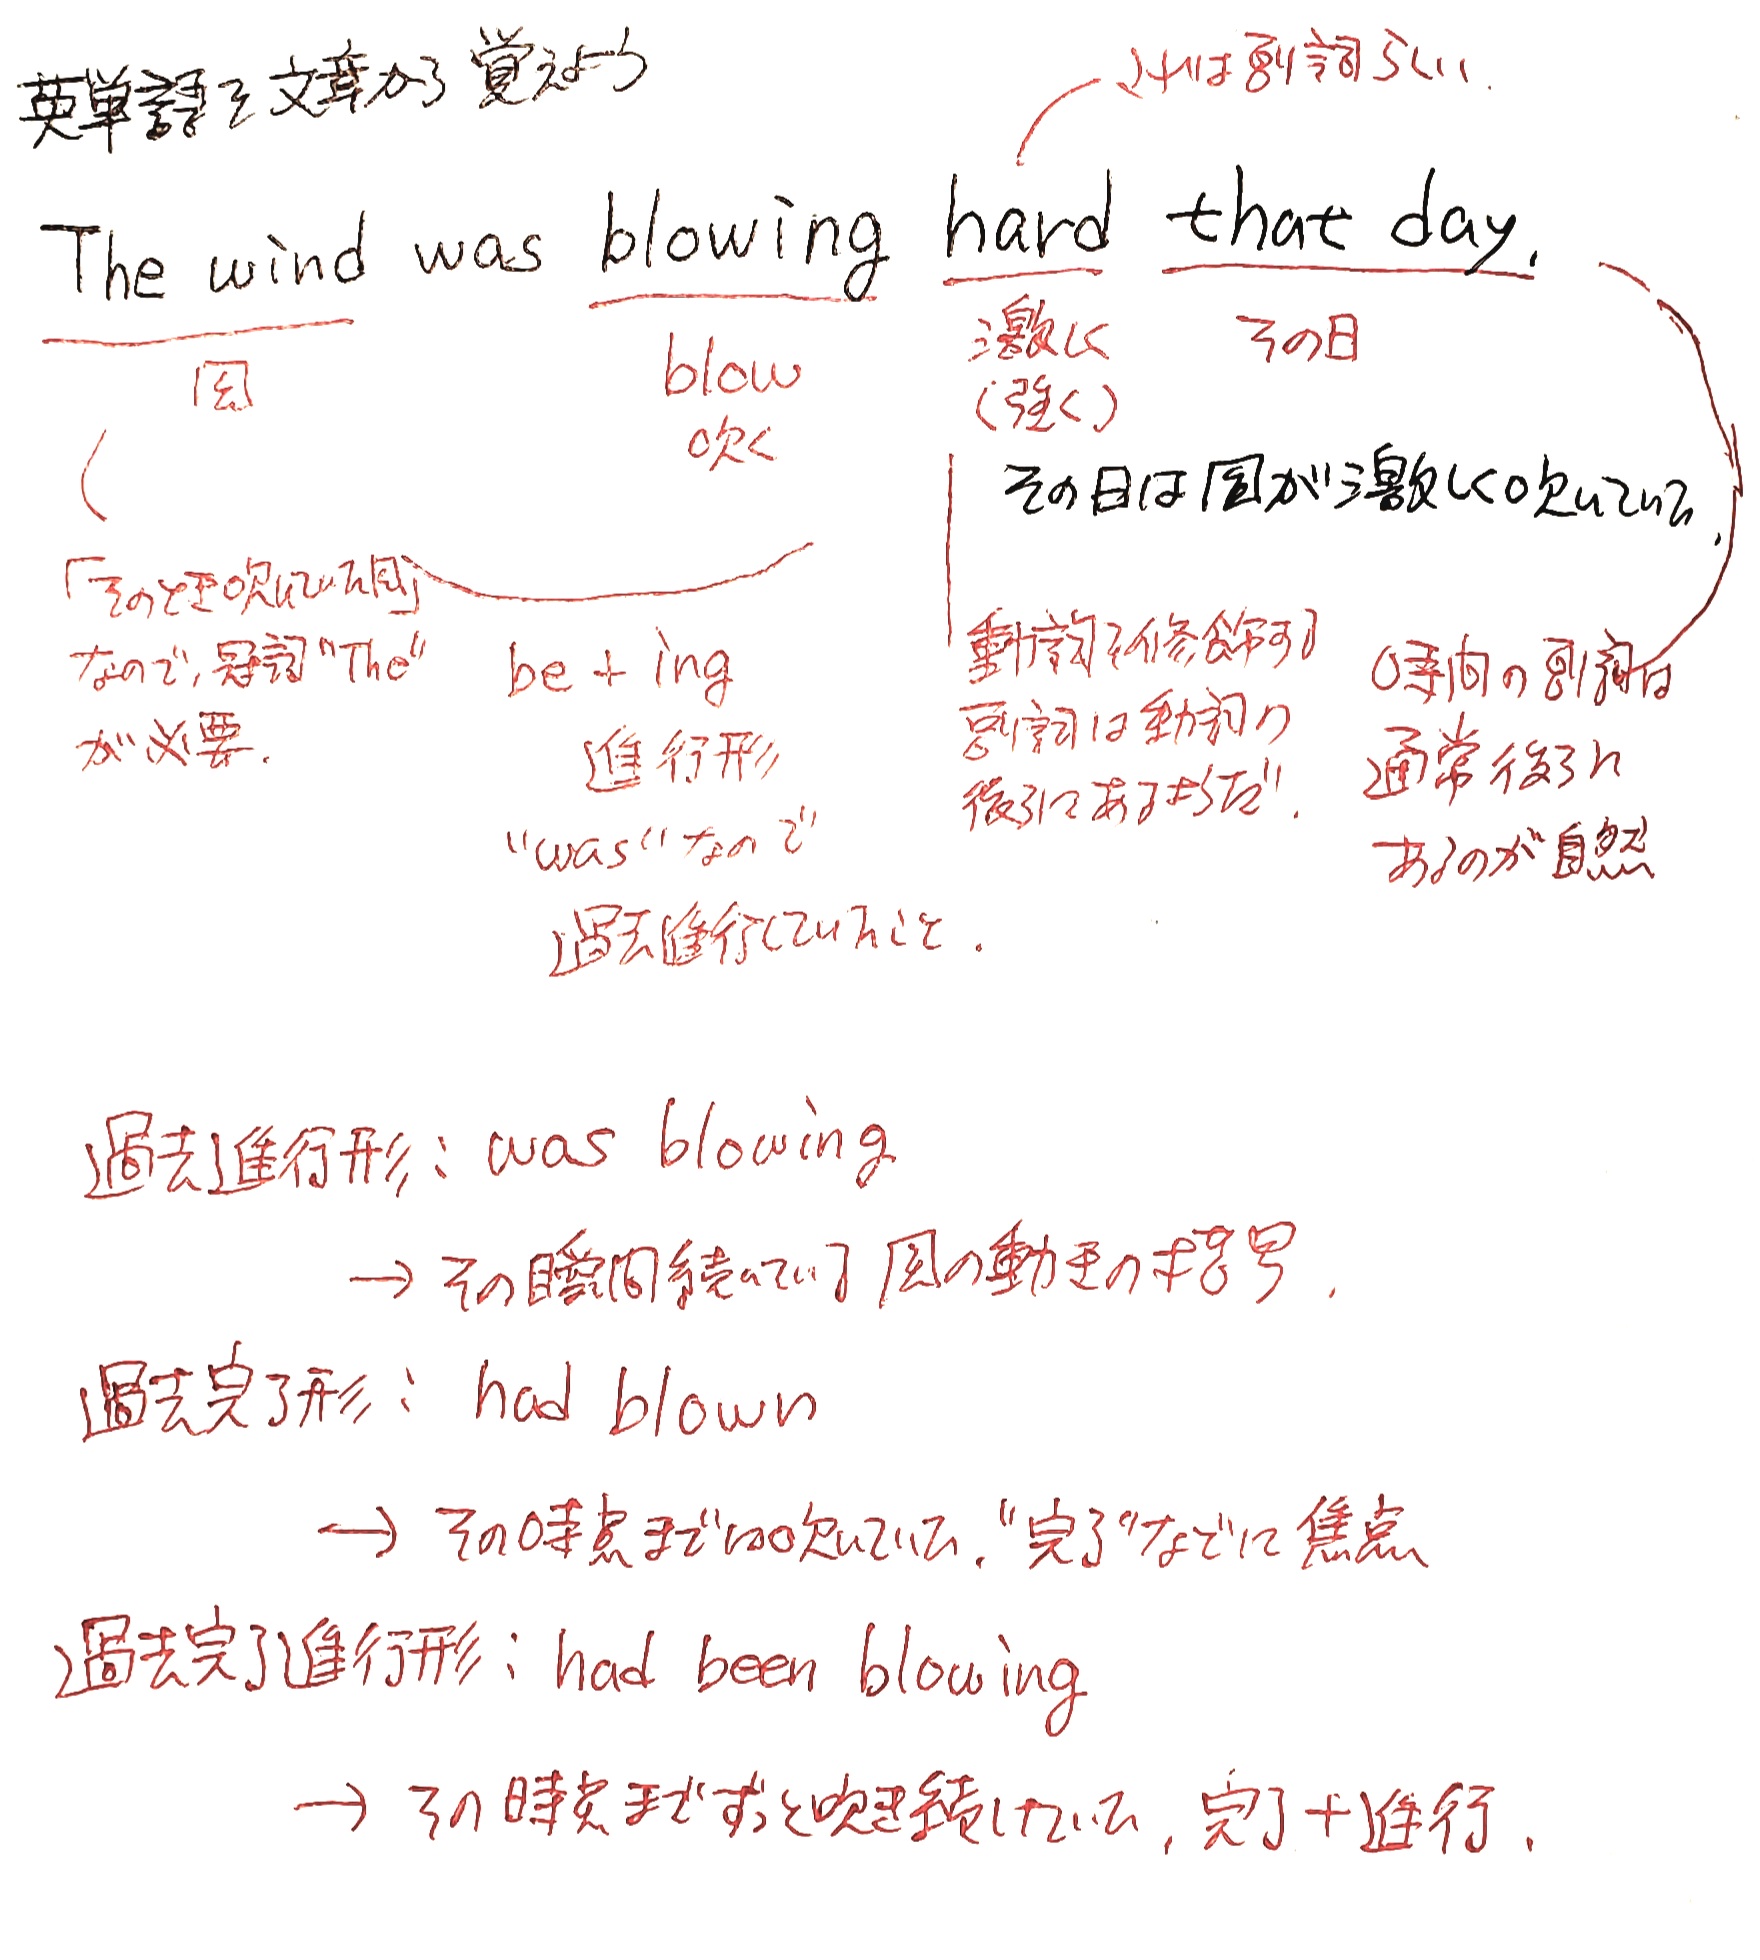 英単語を文章から覚えよう
これは副詞らしい.
The wind was blowing hard that day.
風
blow
吹く
激しく
(強く)
その日
その日は風が激しく吹いていた.
「そのとき吹いていた風」
なので,冠詞"The"
が必要.
be + ing
進行形
"was"なので
過去進行していたこと.
動詞を修飾する
副詞は動詞の
後ろにあるようだ.
時間の副詞は
通常後ろに
あるのが自然
過去進行形: was blowing
→ その瞬間続いている風の動きの描写.
過去完了形: had blown
→ その時点までに吹いていた."完了"などに焦点
過去完了進行形: had been blowing
→ その時点までずっと吹き続けていた.完了+進行.